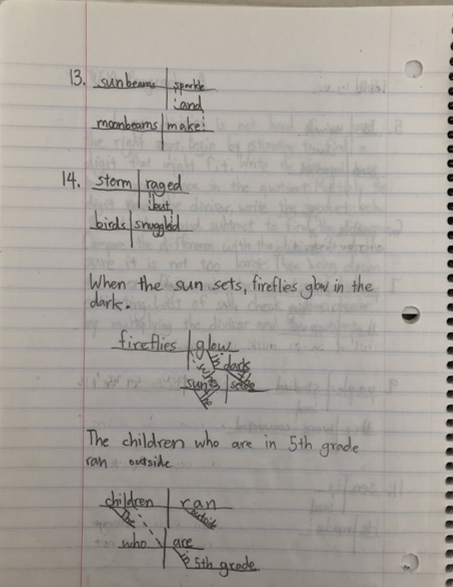 13. sunbeams sparkle
and
moonbeams make
14. storm raged
but
birds snuggled
When the sun sets, fireflies glow in the
dark.
fireflies glow
in dark
sun sets
the
The children who are in 5th grade
ran outside
children ran
The outside
who are
in 5th grade